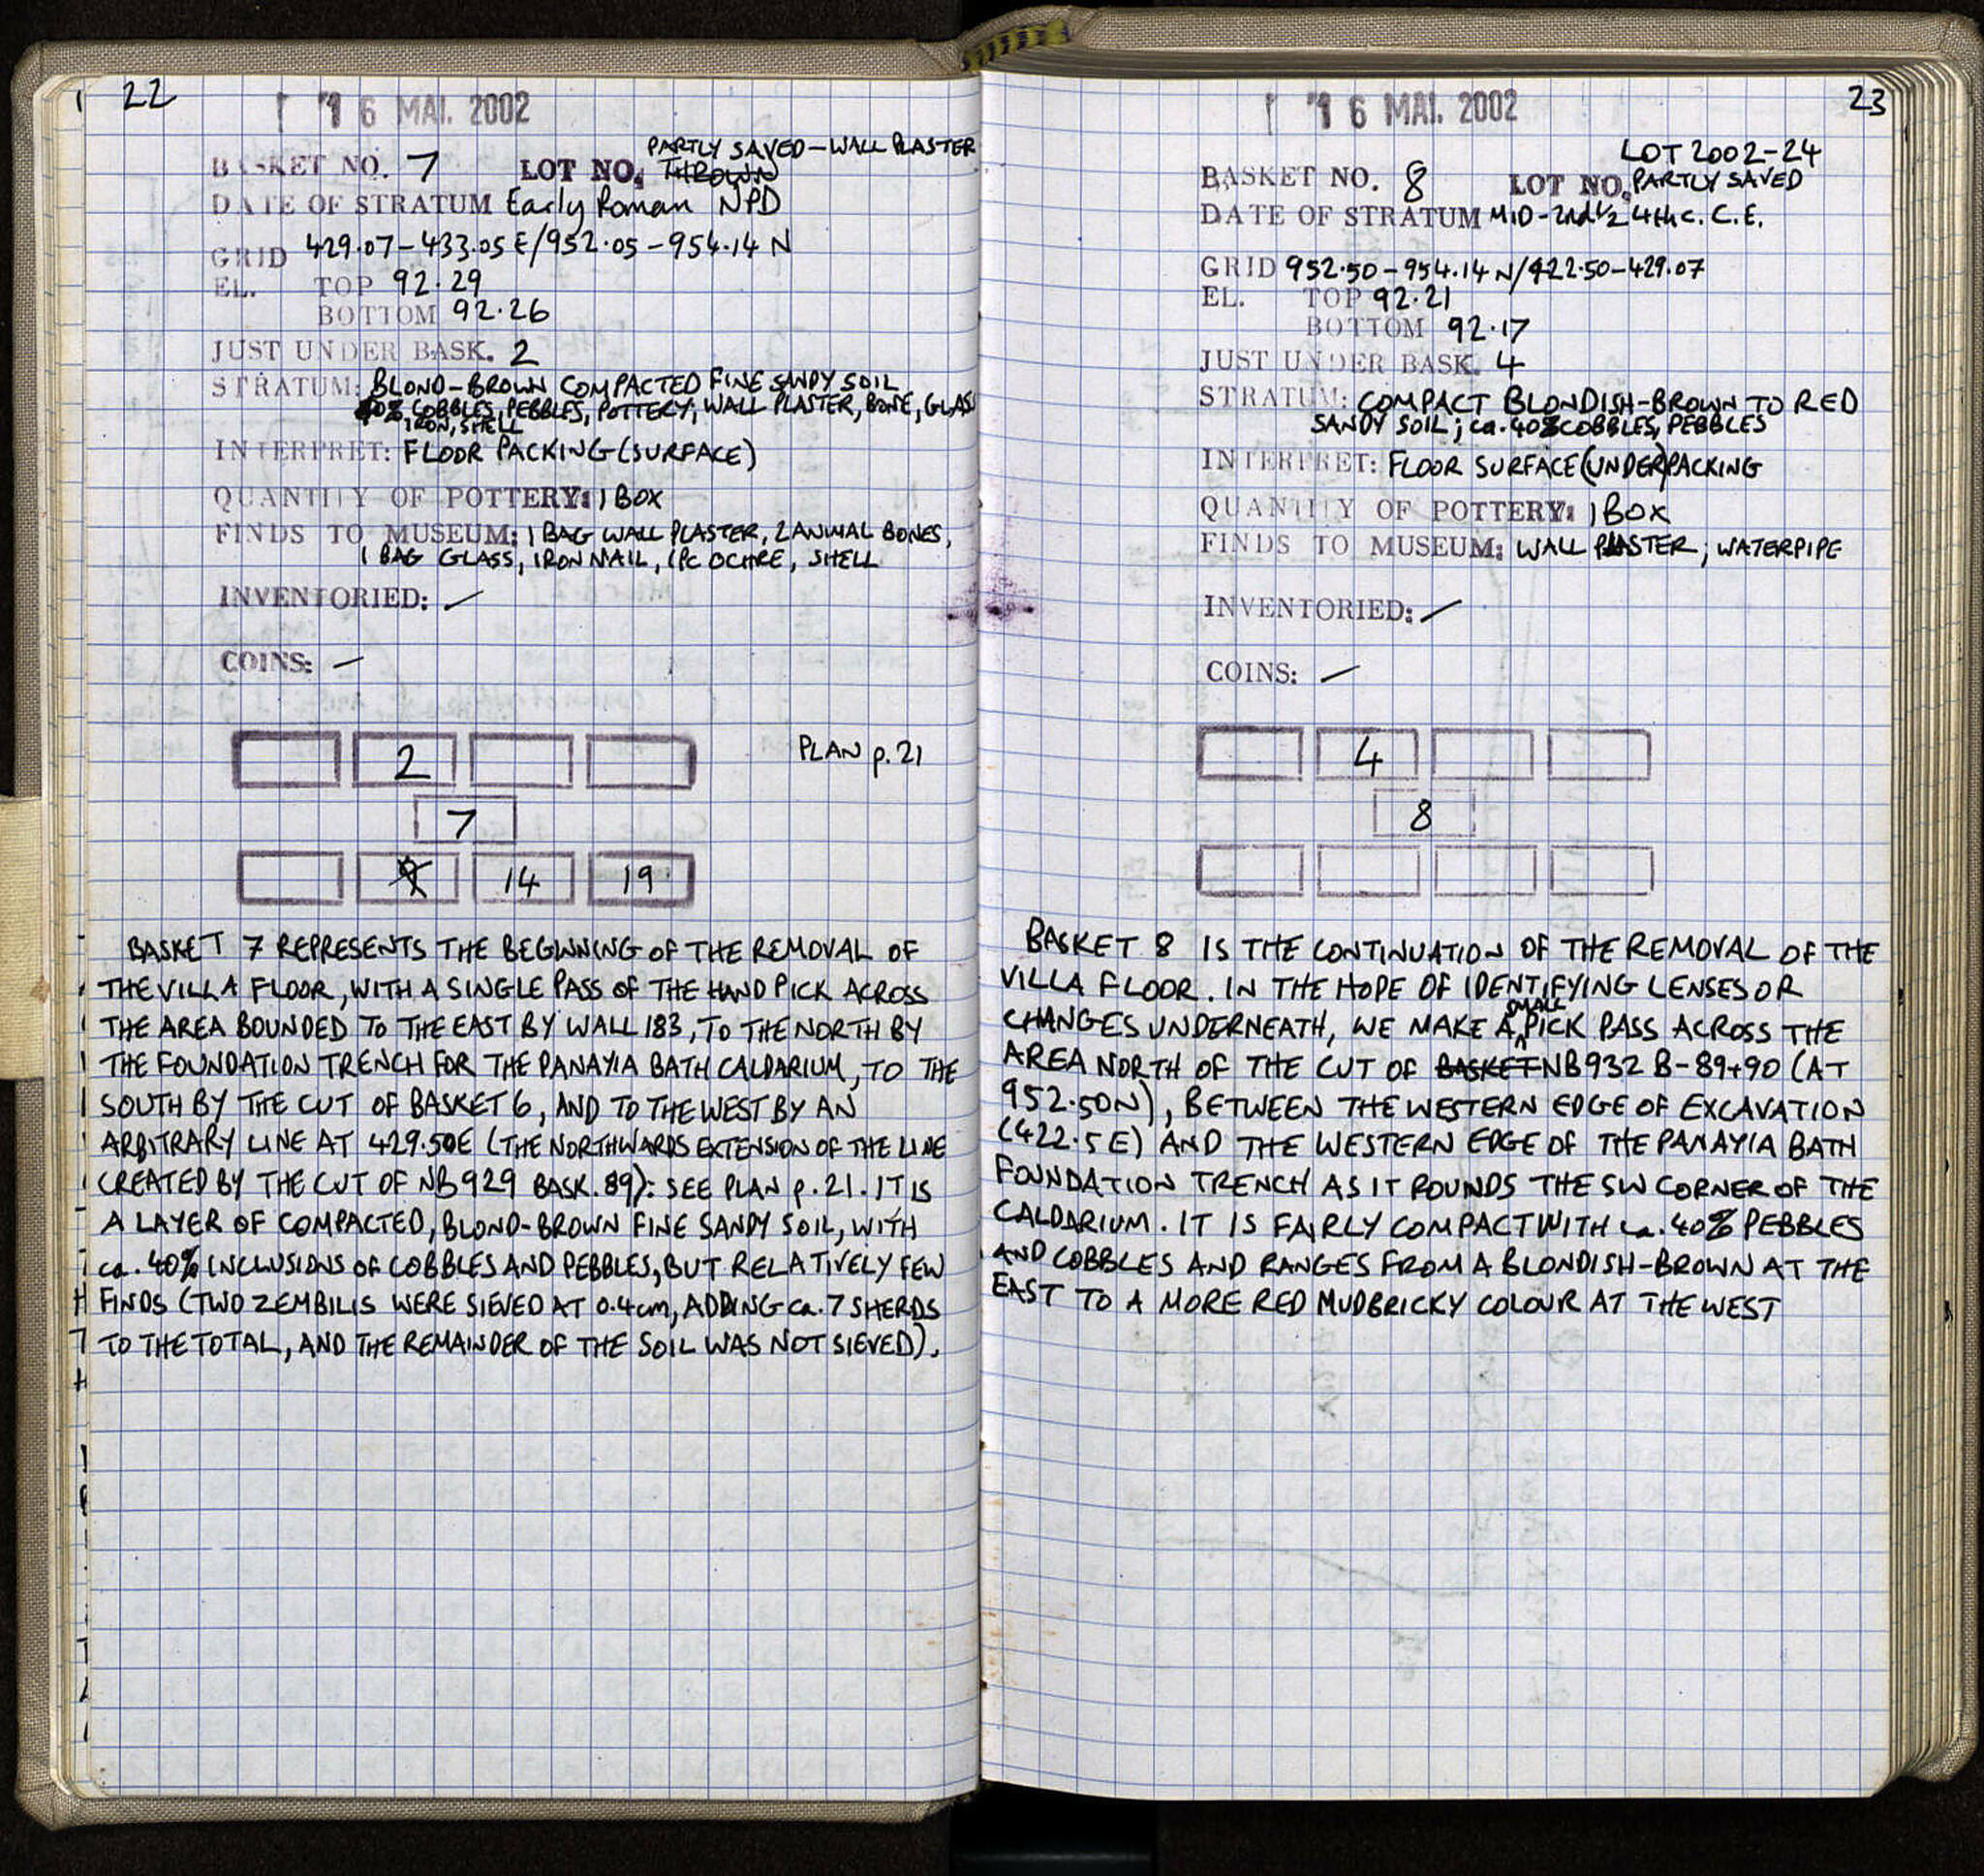 22
16 MAI. 2002
PARTLY SAVED - WALL PLASTER
BASKET NO. 7 LOT NO. THROWN
DATE OF STRATUM Early Roman NPD
GRID 429.07-433.05 E/952.05-954.14 N
EL. TOP 92.29
BOTTOM 92.26
JUST UNDER BASK. 2
STRATUM: BLOND-BROWN COMPACTED FINE SANDY SOIL
40% COBBLES, PEBBLES, POTTERY, WALL PLASTER, BONE, GLASS
IRON, SHELL
INTERPRET: FLOOR PACKING (SURFACE)
QUANTITY OF POTTERY: 1 BOX
FINDS TO MUSEUM: 1 BAG WALL PLASTER, 2 ANIMAL BONES,
1 BAG GLASS, IRON NAIL, 1 PC OCHRE, SHELL
INVENTORIED: —
COINS: —
2
PLAN p. 21
7
9 14 19
BASKET 7 REPRESENTS THE BEGINNING OF THE REMOVAL OF
THE VILLA FLOOR, WITH A SINGLE PASS OF THE HAND PICK ACROSS
THE AREA BOUNDED TO THE EAST BY WALL 183, TO THE NORTH BY
THE FOUNDATION TRENCH FOR THE PANAYIA BATH CALDARIUM, TO THE
SOUTH BY THE CUT OF BASKET 6, AND TO THE WEST BY AN
ARBITRARY LINE AT 429.50E (THE NORTHWARDS EXTENSION OF THE LINE
CREATED BY THE CUT OF NB929 BASK. 89): SEE PLAN p. 21. IT IS
A LAYER OF COMPACTED, BLOND-BROWN FINE SANDY SOIL, WITH
ca. 40% INCLUSIONS OF COBBLES AND PEBBLES, BUT RELATIVELY FEW
FINDS (TWO ZEMBILIS WERE SIEVED AT 0.4cm, ADDING ca. 7 SHERDS
TO THE TOTAL, AND THE REMAINDER OF THE SOIL WAS NOT SIEVED).
23
16 MAI. 2002
LOT 2002-24
BASKET NO. 8 LOT NO. PARTLY SAVED
DATE OF STRATUM MID-2nd ½ 4th c. C.E.
GRID 952.50-954.14 N/422.50-429.07
EL. TOP 92.21
BOTTOM 92.17
JUST UNDER BASK. 4
STRATUM: COMPACT BLONDISH-BROWN TO RED
SANDY SOIL; ca. 40% COBBLES, PEBBLES
INTERPRET: FLOOR SURFACE (UNDER) PACKING
QUANTITY OF POTTERY: 1 BOX
FINDS TO MUSEUM: WALL PLASTER; WATERPIPE
INVENTORIED: —
COINS: —
4
8
BASKET 8 IS THE CONTINUATION OF THE REMOVAL OF THE
VILLA FLOOR. IN THE HOPE OF IDENTIFYING LENSES OR
CHANGES UNDERNEATH, WE MAKE A SMALL PICK PASS ACROSS THE
AREA NORTH OF THE CUT OF BASKET NB932 B-89+90 (AT
952.50N), BETWEEN THE WESTERN EDGE OF EXCAVATION
(422.5 E) AND THE WESTERN EDGE OF THE PANAYIA BATH
FOUNDATION TRENCH AS IT ROUNDS THE SW CORNER OF THE
CALDARIUM. IT IS FAIRLY COMPACT WITH ca. 40% PEBBLES
AND COBBLES AND RANGES FROM A BLONDISH-BROWN AT THE
EAST TO A MORE RED MUDBRICKY COLOUR AT THE WEST